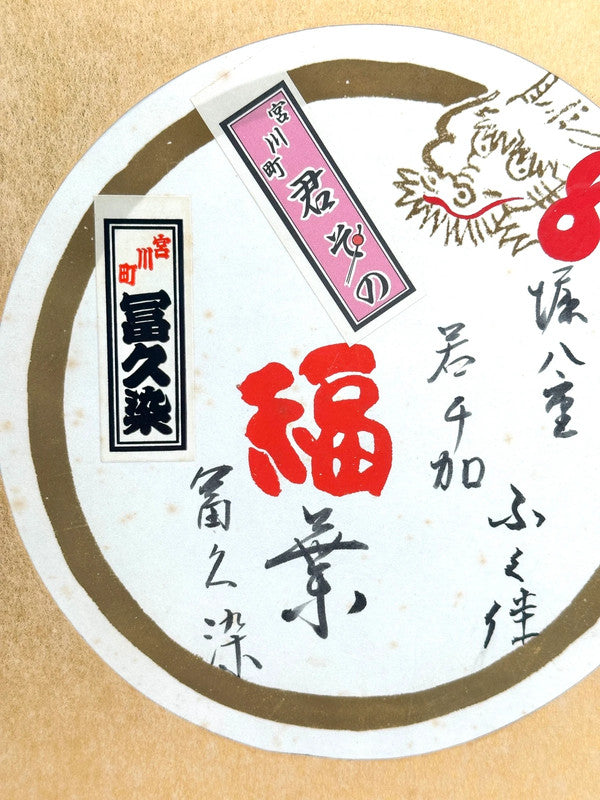 宮川町 君その
宮川町 冨久染
堀八重
若千加
ふく佳
福葉
冨久染